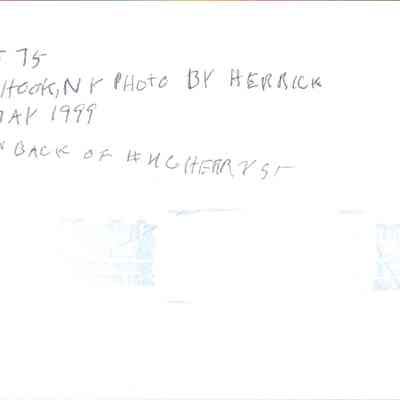 75
HOOK, NY PHOTO BY HERRICK
MAY 1999
BACK OF #4 CHERRY ST